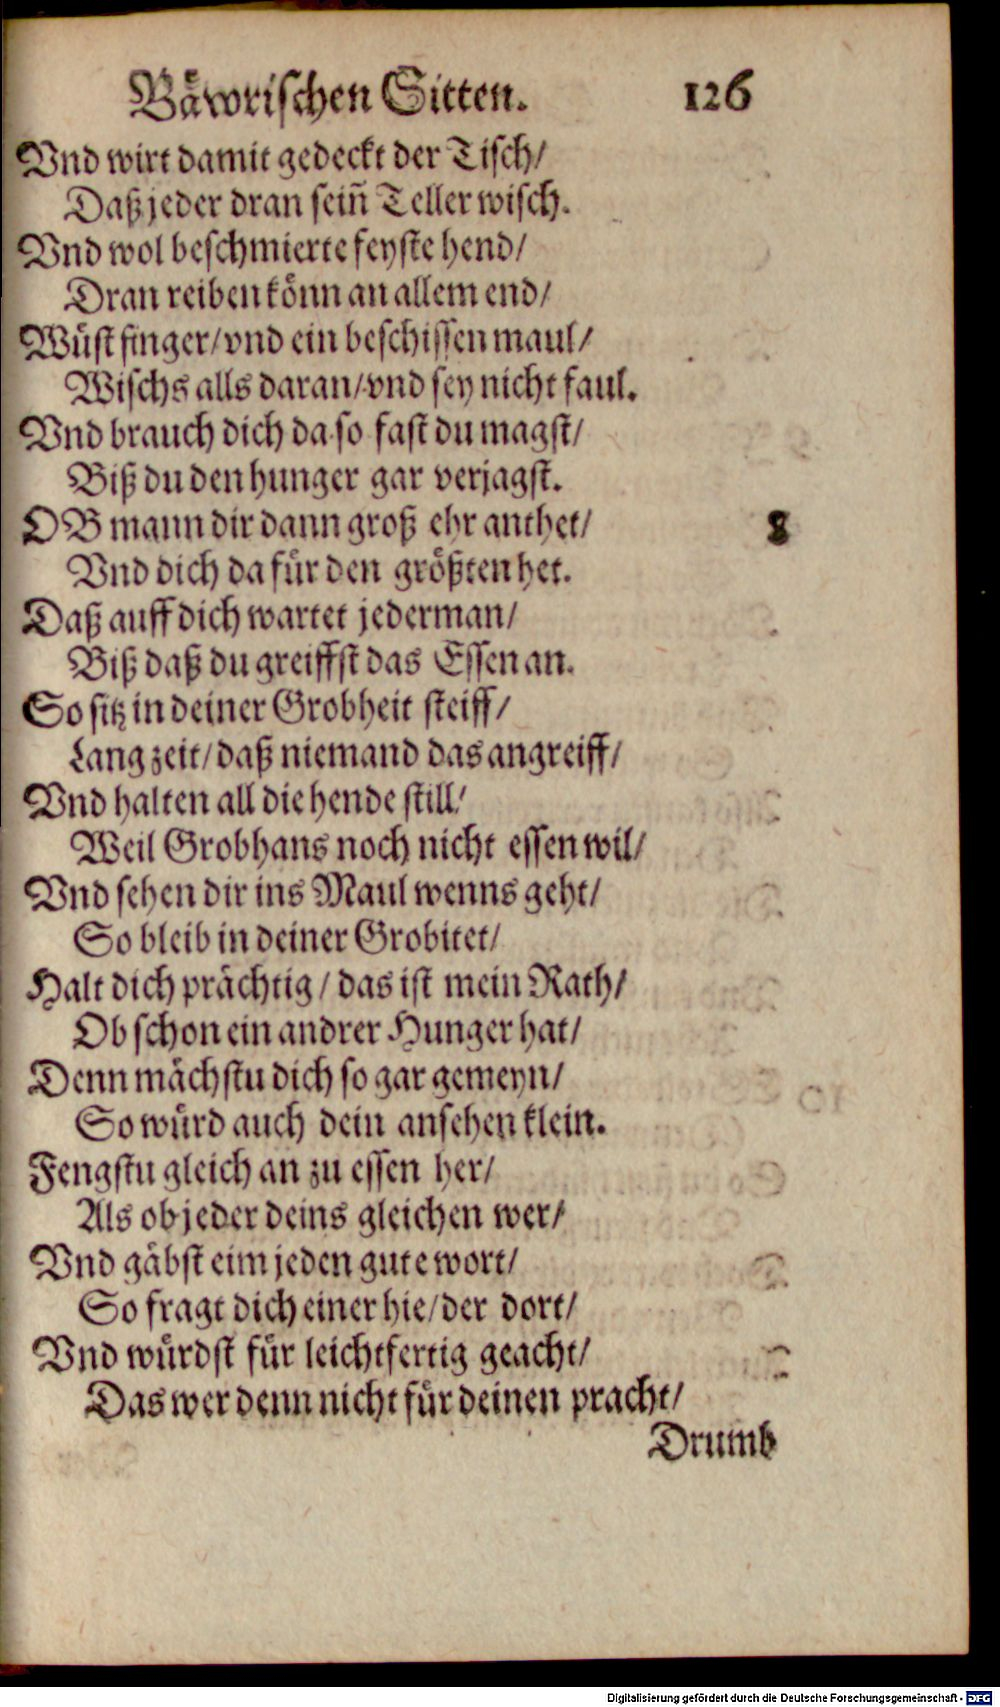 Båwrischen Sitten. 126
Vnd wirt damit gedeckt der Tisch/
Daß jeder dran sein̄ Teller wisch.
Vnd wol beschmierte feyste hend/
Dran reiben koͤnn an allem end/
Wuͤst finger/ vnd ein beschissen maul/
Wischs alls daran/ vnd sey nicht faul.
Vnd brauch dich da so fast du magst/
Biß du den hunger gar verjagst.
OB mann dir dann groß ehr anthet/ 8
Vnd dich da fuͤr den groͤßten het.
Daß auff dich wartet jederman/
Biß daß du greiffst das Essen an.
So sitz in deiner Grobheit steiff/
Lang zeit/ daß niemand das angreiff/
Vnd halten all die hende still/
Weil Grobhans noch nicht essen wil/
Vnd sehen dir ins Maul wenns geht/
So bleib in deiner Grobitet/
Halt dich praͤchtig/ das ist mein Rath/
Ob schon ein andrer Hunger hat/
Denn maͤchstu dich so gar gemeyn/
So wuͤrd auch dein ansehen klein.
Fengstu gleich an zu essen her/
Als ob jeder deins gleichen wer/
Vnd gaͤbst eim jeden gute wort/
So fragt dich einer hie/ der dort/
Vnd wuͤrdst fuͤr leichtfertig geacht/
Das wer denn nicht fuͤr deinen pracht/
Drumb
Digitalisierung gefördert durch die Deutsche Forschungsgemeinschaft - DFG